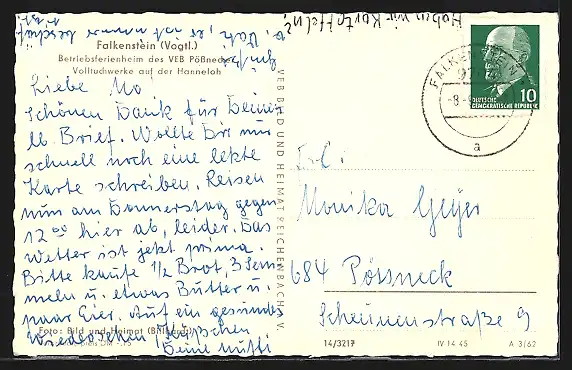 Haben wir Kartoffeln?
Falkenstein (Vogtl.)
Betriebsferienheim des VEB Pößneck
Volltuchwerke auf der Hanneloh
Liebe Mo
Schönen Dank für Deinen
lb. Brief. Wollte Dir nur
schnell noch eine letzte
Karte schreiben. Reisen
nun am Donnerstag gegen
12 00 hier ab, leider. Das
Wetter ist jetzt prima.
Bitte kaufe 1/2 Brot, 3 Sem-
meln u. etwas Butter u.
paar Eier. Auf ein gesundes
Wiedersehen Küsschen
Deine Mutti
Foto: Bild und Heimat
VEB BILD UND HEIMAT REICHENBACH i. V.
FALKENSTEIN
a
10
DEUTSCHE
DEMOKRATISCHE REPUBLIK
Frl.
Monika Geyer
684 Pössneck
Scheunenstraße 9
14/3217
IV 14 45
A 3/62